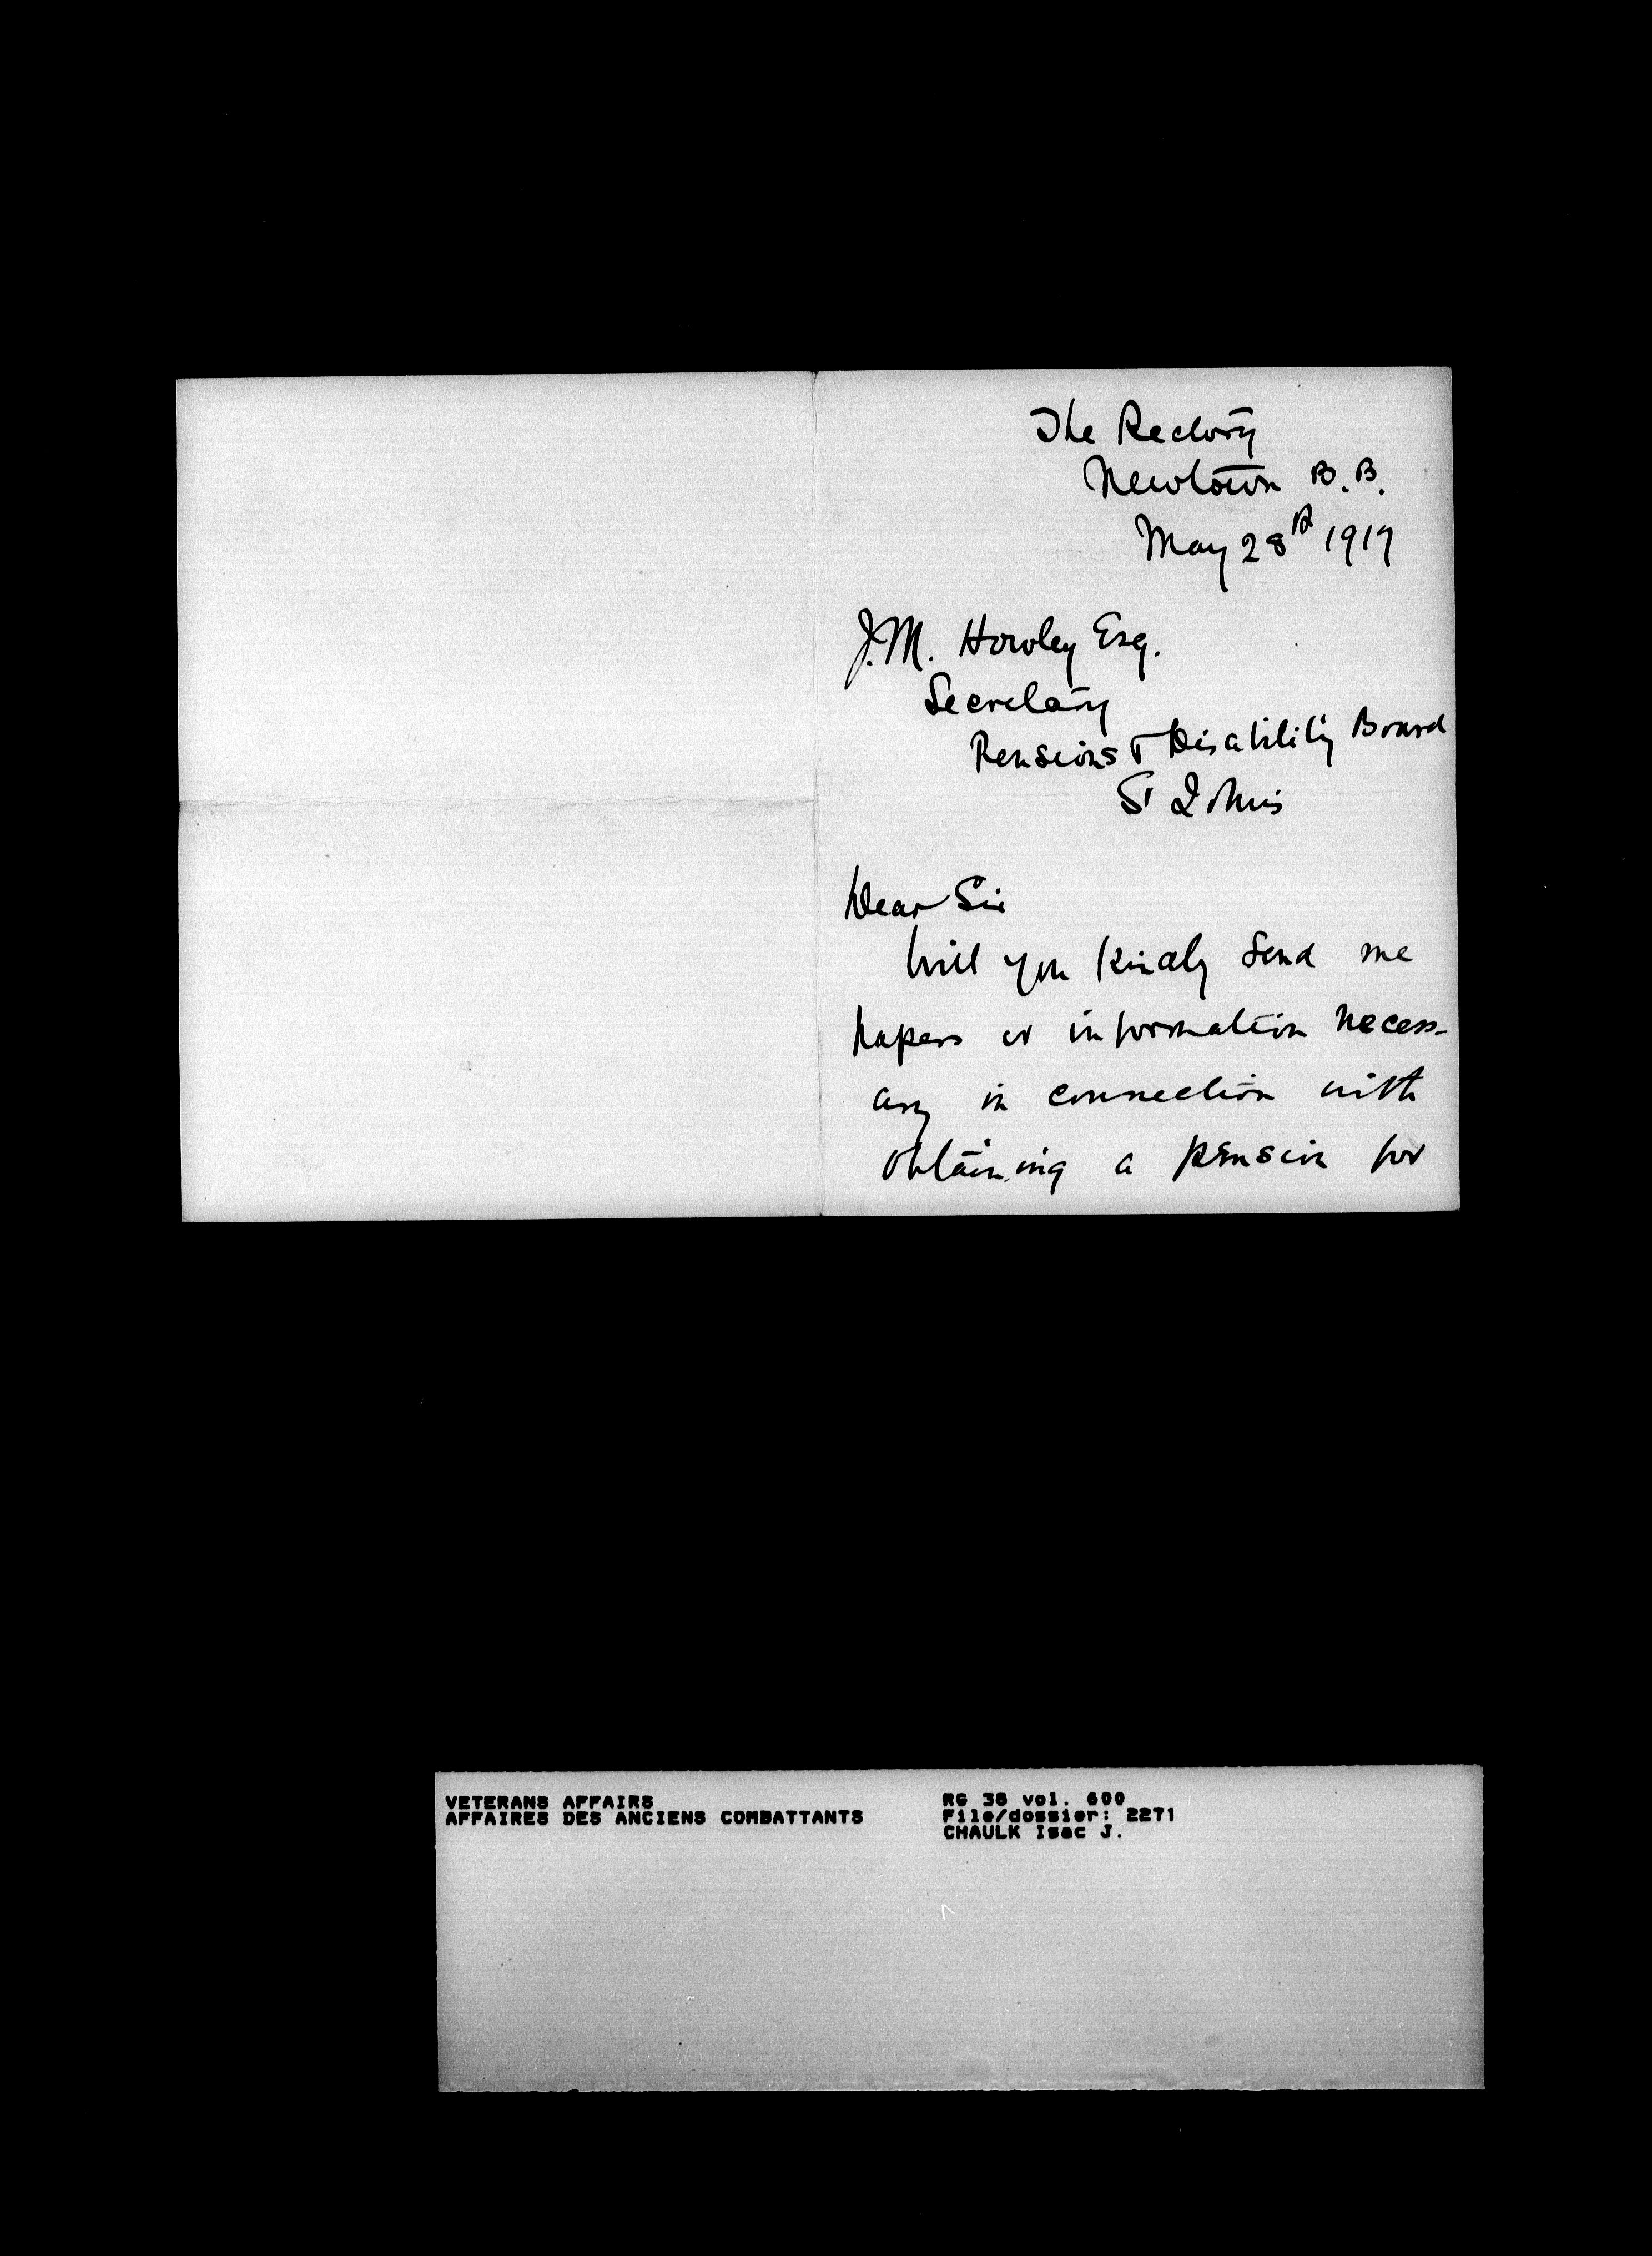 The Rectory
Newtown B.B.
May 28th 1919
J.M. Howley Esq.
Secretary
Pensions & Disability Board
St Johns
Dear Sir
Will you kindly send me
papers or information necess-
ary in connection with
obtaining a pension for
VETERANS AFFAIRS
AFFAIRES DES ANCIENS COMBATTANTS
RG 38 vol. 600
File/dossier: 2271
CHAULK Isac J.